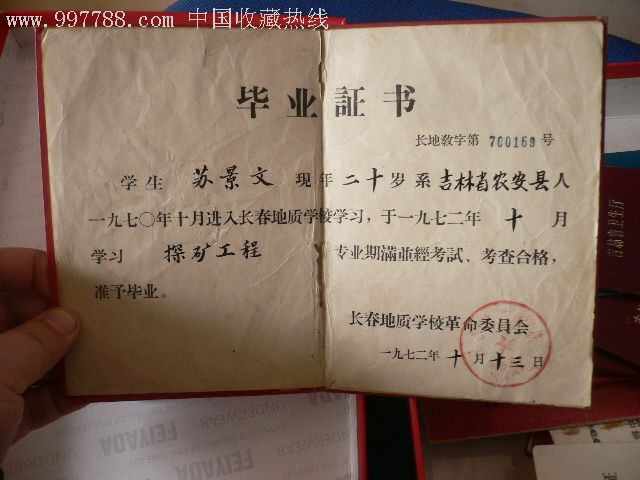 www.997788.com 中国收藏热线
毕业証书
长地教字第 700169 号
学生 苏景文 现年二十岁系吉林省农安县人
一九七〇年十月进入长春地质学校学习，于一九七二年 十 月
学习 探矿工程 专业期滿並經考試、考查合格，
准予毕业。
长春地质学校革命委員会
一九七二年 十 月 十三 日
吉林省卫生厅
FEIYADA
UNDERWEAR
FEIYADA
UNDERWEAR